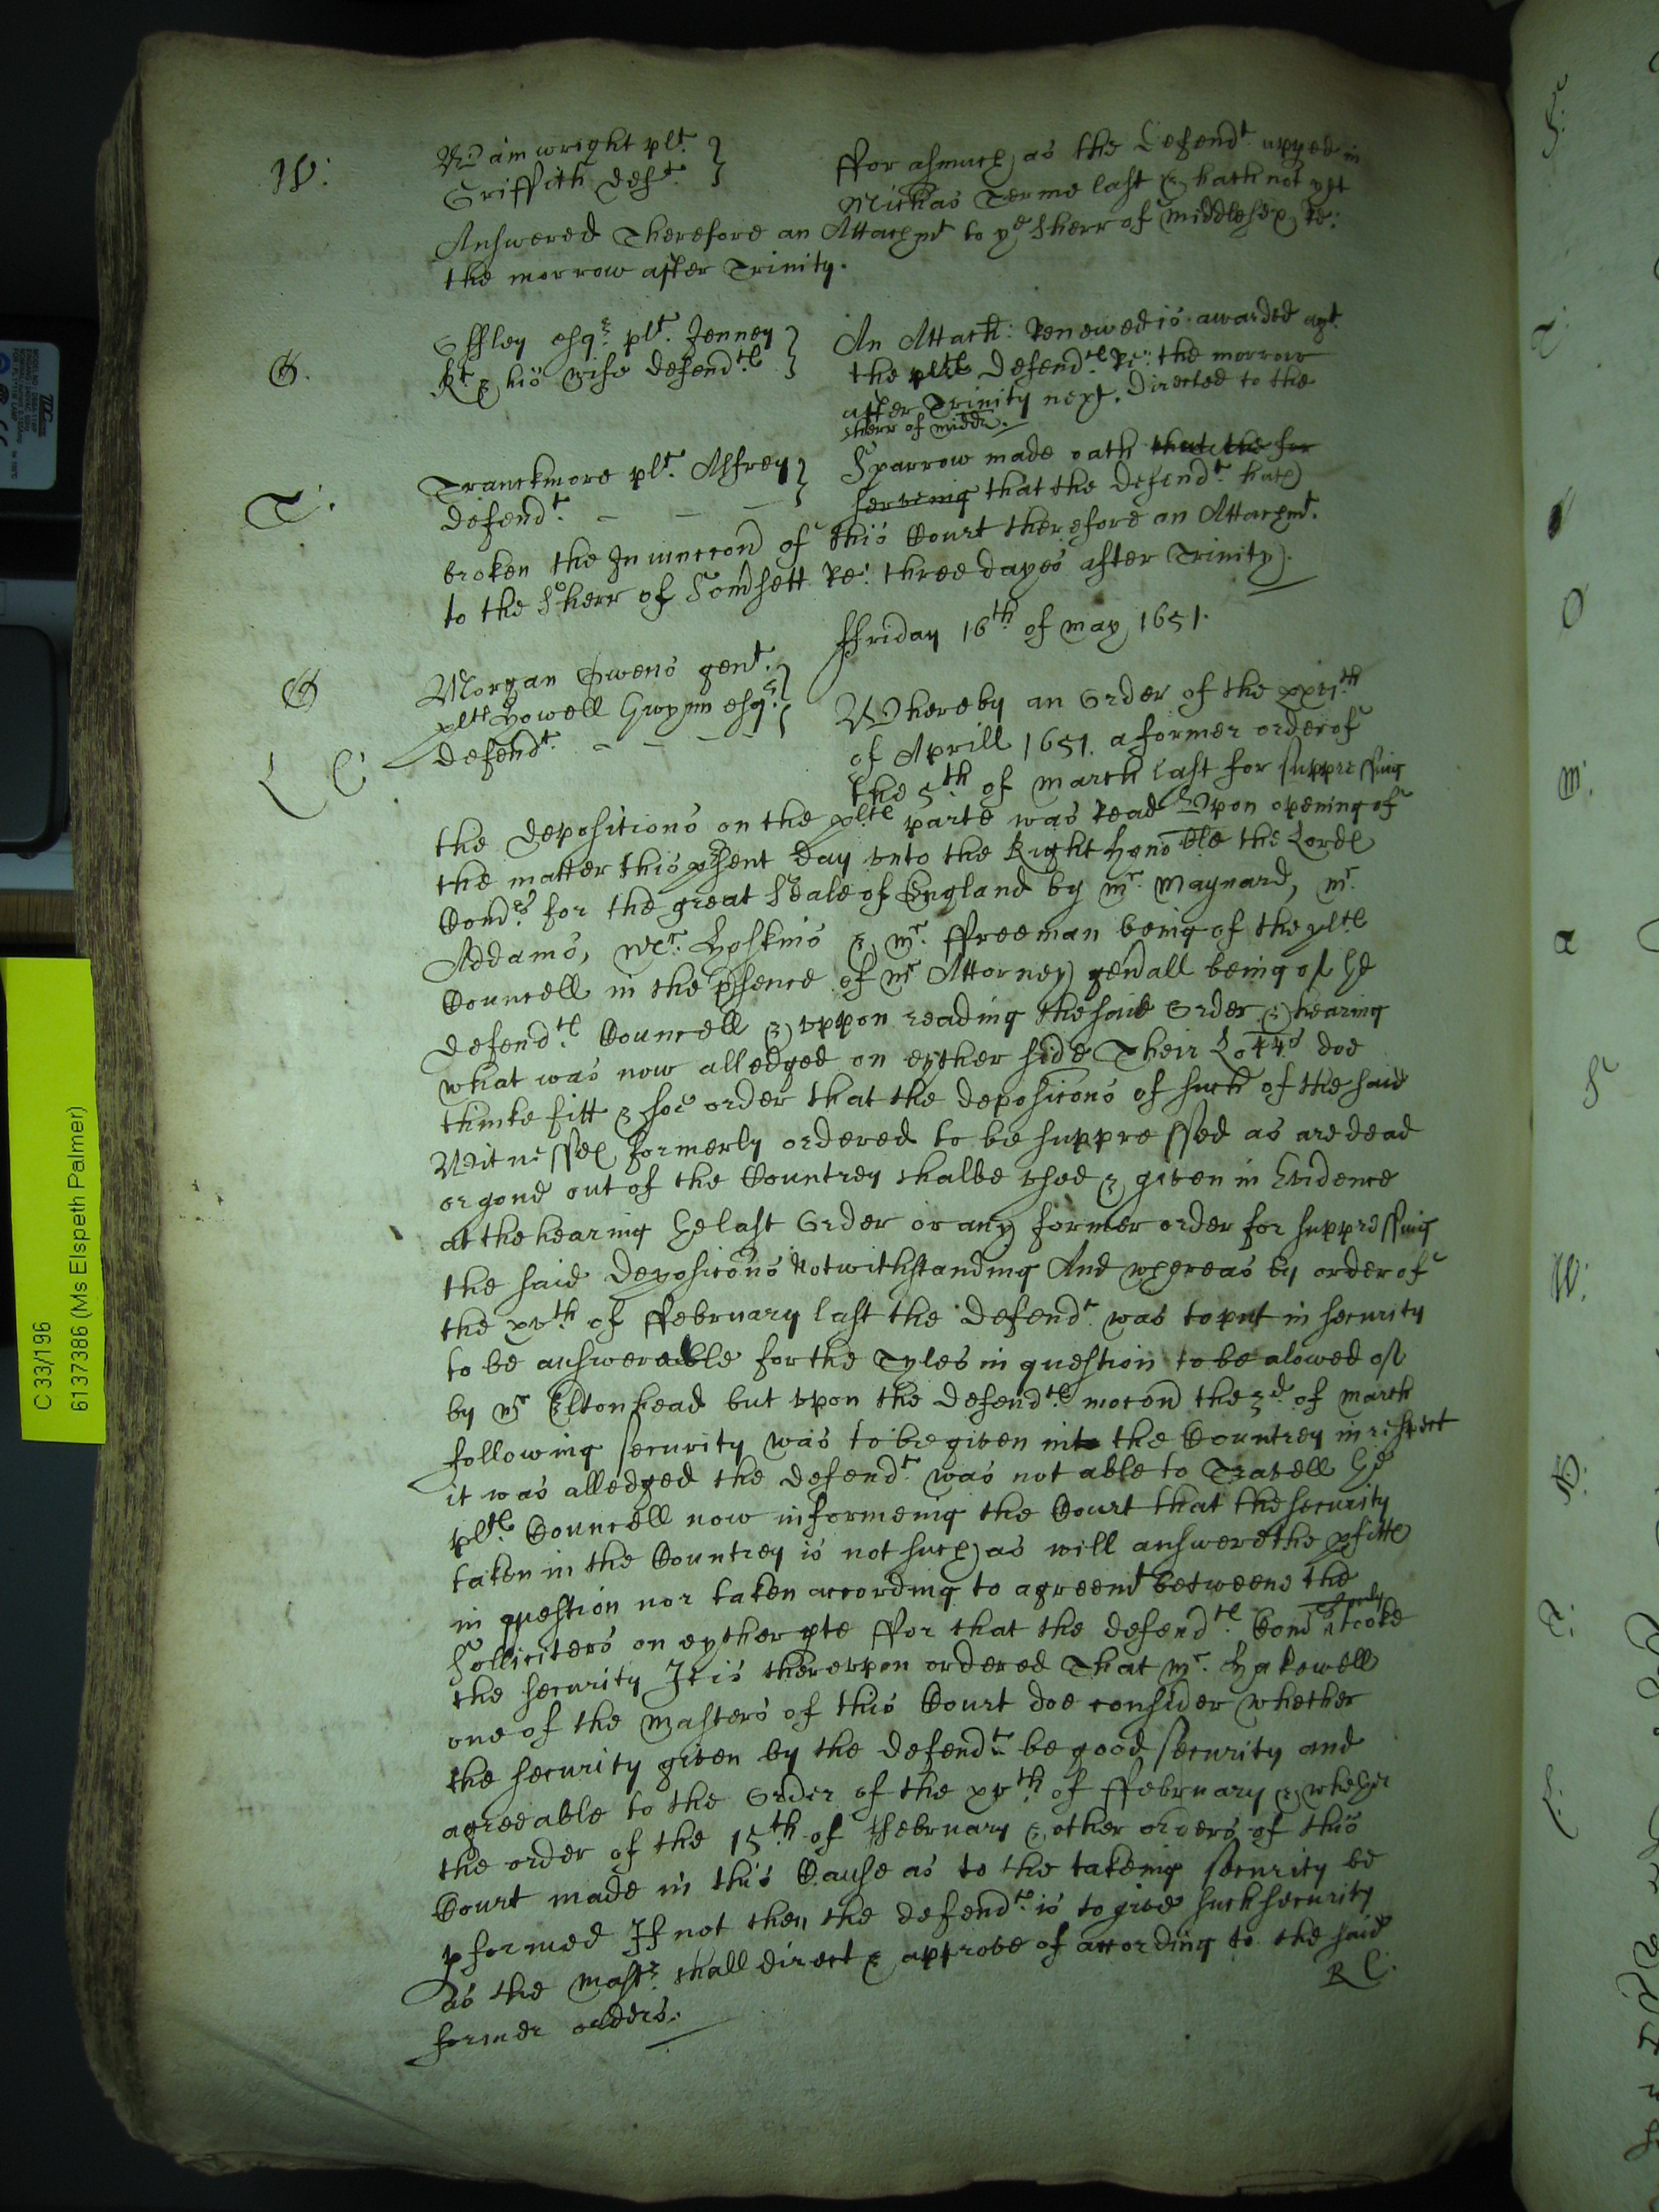 W:
Wainwright plt.
Griffith deft.
ffor asmuch as the Defendt. apped in
Michas Terme last & hath not yet
Answered Therefore an Attachmt to ye Sherr of Middlesex Re:
the morrow after Trinity.
O.
Offley esqr. plt. Jenney
Kt & his wife defendtes
An Attach: Renewed is awarded agt.
the pltes Defendtes Re: the morrow
after Trinity next. Directed to the
Sherr of Middx.
T.
Tranckmore plt. Alfrey
defendt.
Sparrow made oath that the for
serveing that the defendt. hath
broken the Iniunccon of this Court therefore an Attachmt.
to the Sherr of Somsett Re: three dayes after Trinity.
ffriday 16th of may 1651.
O
Morgan Owens gent.
plte Howell Gwynn esqr.
defendt.
L C:
Whereby an Order of the xxvjth
of Aprill 1651. a former order of
the 5th of march last for suppressing
the depositions on the pltes parte was Read Upon opening of
the matter this psent day vnto the Right Honoble the Lordes
Comrs for the great Seale of England by mr. Maynard, mr.
Addams, mr. Hoskins & mr. ffreeman being of the pltes
Councell in the psence of mr Attorney genall being of the
defendtes Councell & vppon reading the said Order & hearing
what was now alledged on eyther side Their Lopps doe
thinke fitt & soe order that the deposicons of such of the said
Witnesses formerly ordered to be suppressed as are dead
or gone out of the Countrey shalbe vsed & given in Evidence
at the hearing the last Order or any former order for suppressing
the said deposicons Notwithstanding And whereas by order of
the xvth of ffebruary last the defendt was to put in security
to be answerable for the Tyles in question to be alowed of
by mr Eltonhead but vpon the defendtes mocon the 3d of march
following security was to be given in the Countrey in respect
it was alledged the defendt was not able to Travell the
pltes Councell now informeing the Court that the security
taken in the Countrey is not such as will answere the pfitts
in question nor taken according to agreemt betweene the
Solliciters on eyther pte ffor that the defendtes Comrs only tooke
the security It is therevpon ordered That mr. Hakewell
one of the Masters of this Court doe consider whether
the security given by the defendt be good security and
agreeable to the Order of the xvth of ffebruary & whether
the order of the 15th of ffebruary & other orders of this
Court made in this Cause as to the takeing security be
pformed If not then the defendt is to give such security
as the Mastr shall direct & approve of according to the said
former orders.
R C:
C 33/196
6137386 (Ms Elspeth Palmer)